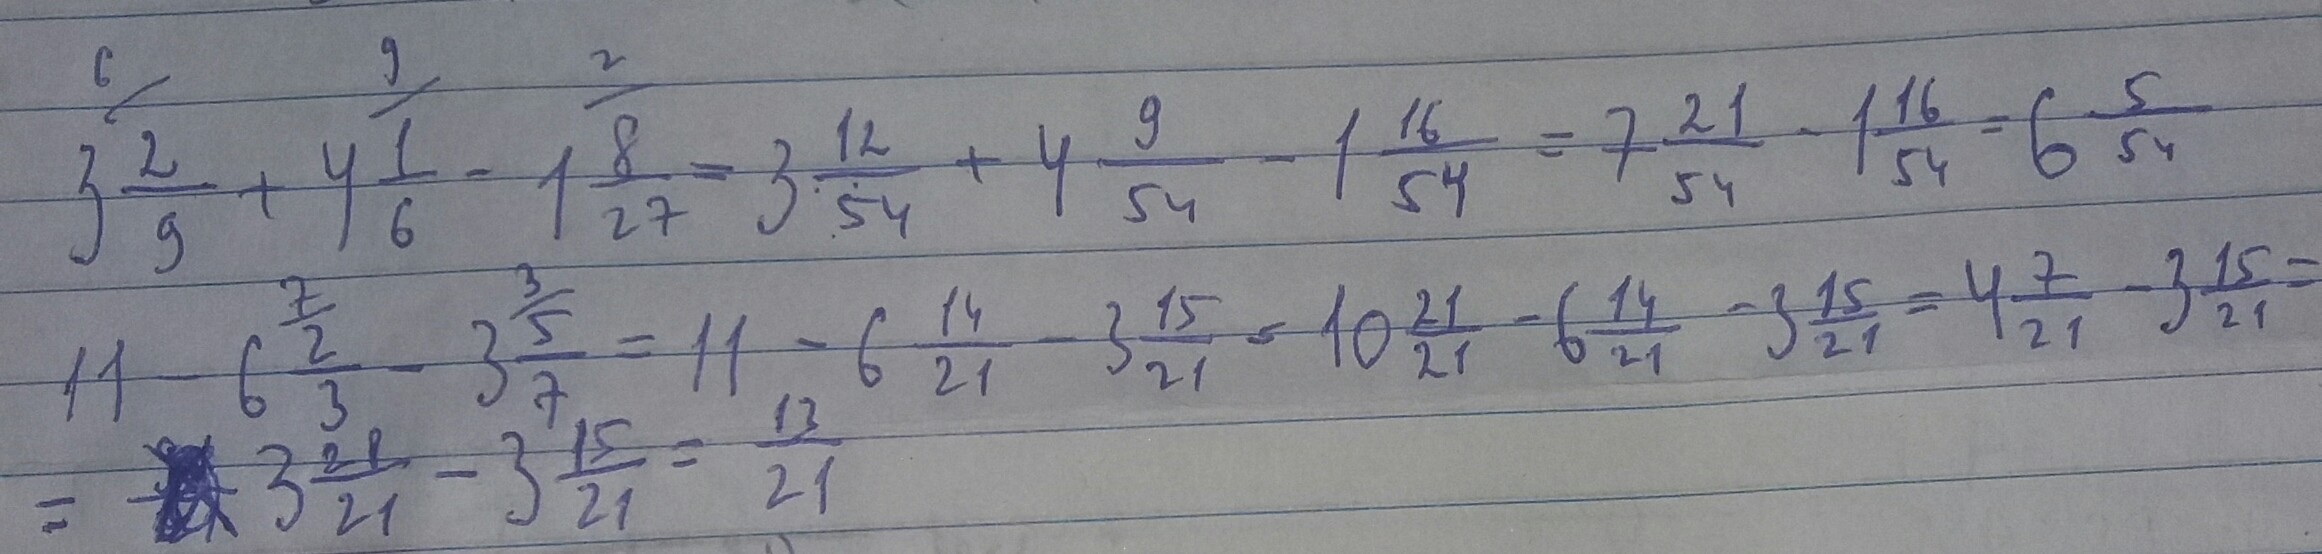 6/ 9/ 2/
3 2/9 + 4 1/6 - 1 8/27 = 3 12/54 + 4 9/54 - 1 16/54 = 7 21/54 - 1 16/54 = 6 5/54
7/ 3/
11 - 6 2/3 - 3 5/7 = 11 - 6 14/21 - 3 15/21 = 10 21/21 - 6 14/21 - 3 15/21 = 4 7/21 - 3 15/21 =
= 3 21/21 - 3 15/21 = 13/21